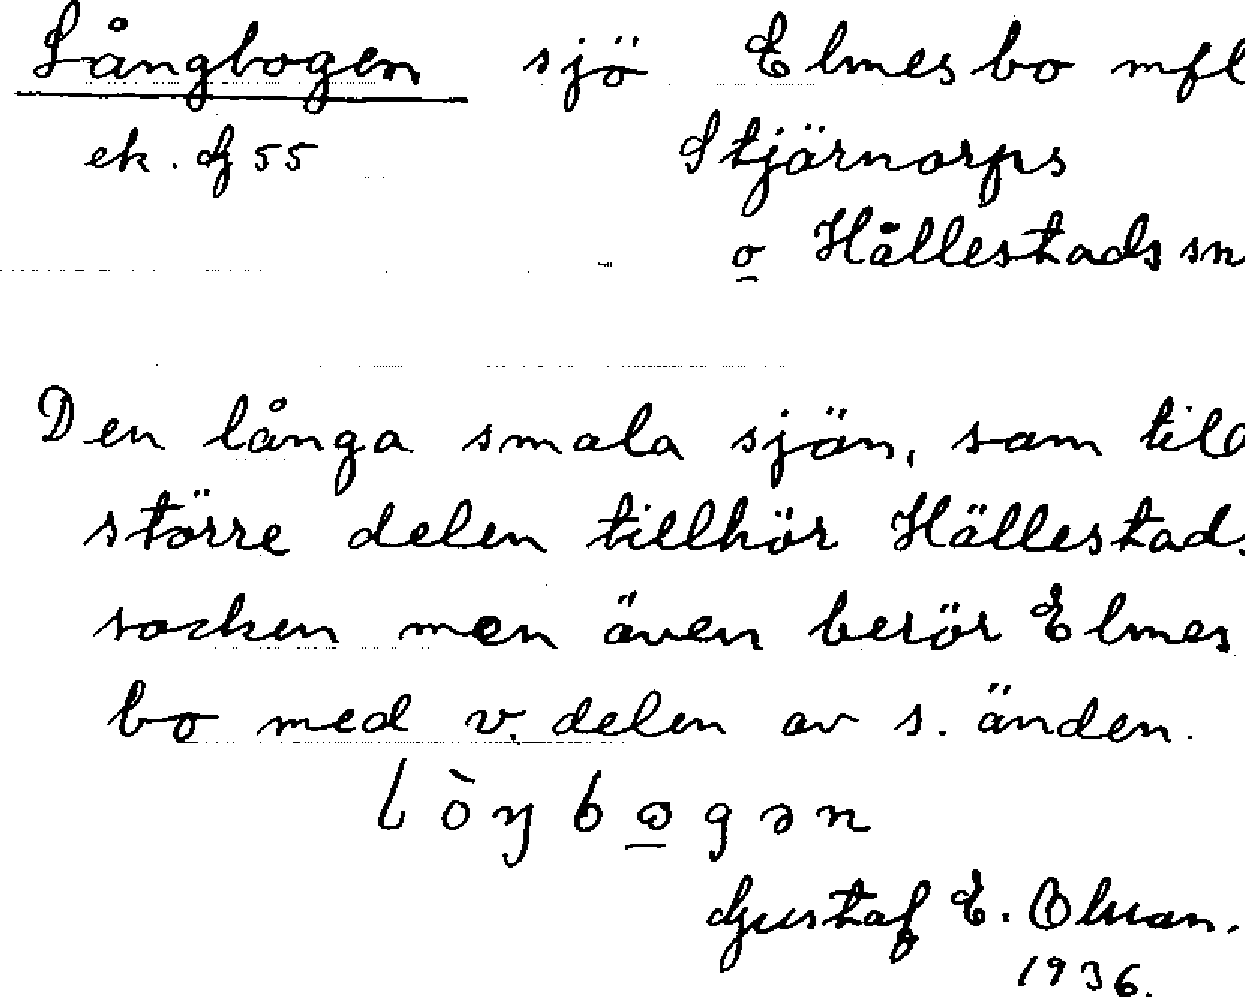 Långbogen sjö Elmesbo mfl
ek. G 55 Stjärnorps
o Hällestads sn
Den långa smala sjön, som till
större delen tillhör Hällestads
socken men även berör Elmes
bo med v. delen av s. änden.
lòŋbogən
Gustaf E.
1936.